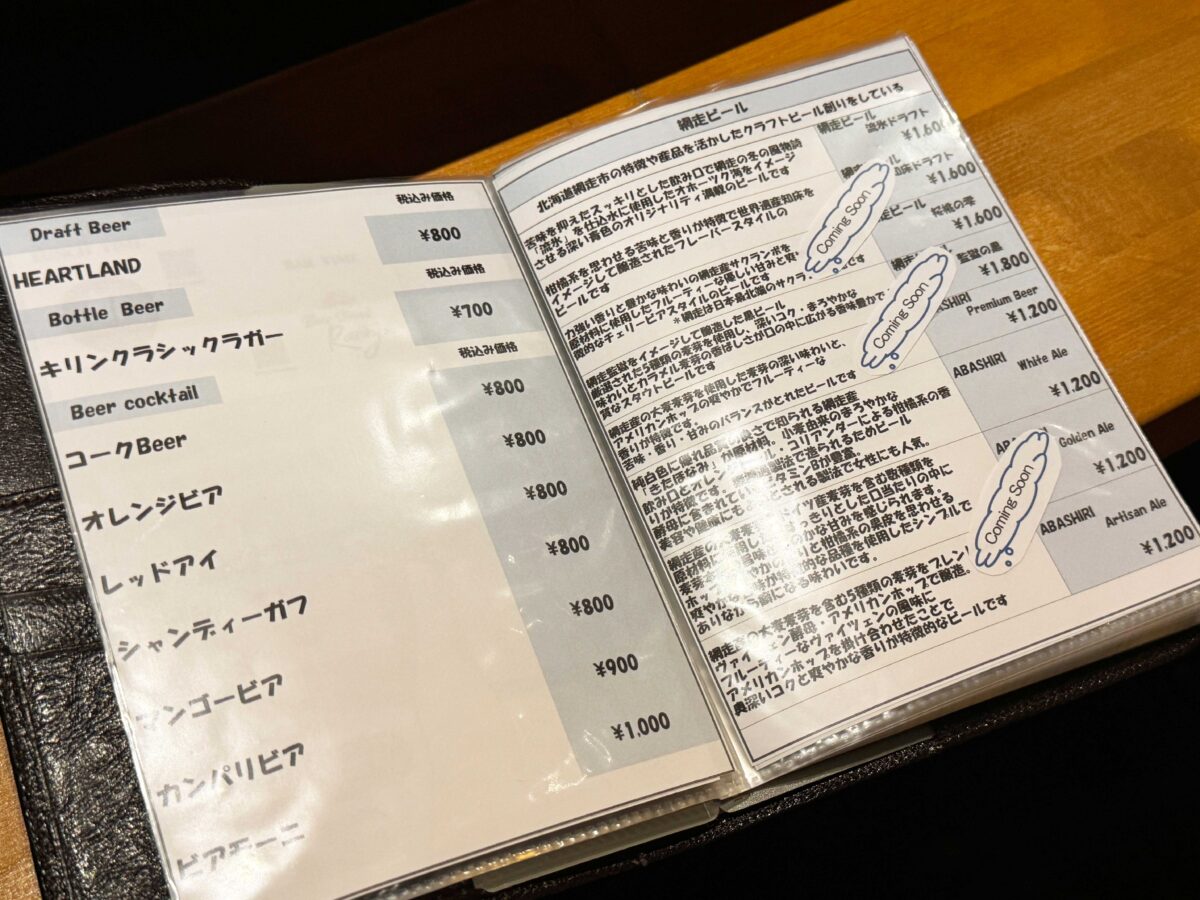 Draft Beer
税込み価格
HEARTLAND
¥800
Bottle Beer
税込み価格
キリンクラシックラガー
¥700
Beer cocktail
税込み価格
コークBeer
¥800
オレンジビア
¥800
レッドアイ
¥800
シャンディーガフ
¥800
マンゴービア
¥800
カンパリビア
¥900
ビアモーニ
¥1.000
網走ビール
北海道網走市の特徴や産品を活かしたクラフトビール創りをしている
苦味を抑えたスッキリとした飲み口で網走の冬の風物詩
「流氷」を仕込水に使用したオホーツク海をイメージ
させる深い青色のオリジナリティ満載のビールです
網走ビール
流氷ドラフト
¥1.600
柑橘系を思わせる苦味と香りが特徴で世界遺産知床を
イメージして醸造されたフレーバースタイルの
ビールです
ビール
知床ドラフト
¥1.600
Coming Soon
力強い香りと豊かな味わいの網走産サクランボを
原材料に使用したフルーティーな優しい甘みと
微的なチェリービアスタイルのビールです
*網走は日本最北端のサクラ
ビール
桜桃の雫
¥1.600
網走監獄をイメージして醸造した黒ビール
厳選された5種類の麦芽を使用し、深いコク・まろやかな
味わいとカラメル麦芽の香ばしさが口の中に広がる香味豊かで
質なスタウトビールです
網走ビール
監獄の黒
¥1.800
Coming Soon
網走産の大麦麦芽を使用した麦芽の深い味わいと、
アメリカンホップの爽やかでフルーティーな
香りが特徴です。
苦味・香り・甘みのバランスがとれたビールです
Premium Beer
¥1.200
純白色に優れ品質の良さで知られる網走産
「きたほなみ」が原材料。小麦由来のまろやかな
飲み口とオレンジピール・コリアンダーによる柑橘系の香
りが特徴です。
製法で造られるためビール
酵母に含まれている
タミンBが豊富。
美容や健康にも
とされる製法で女性にも人気。
ABASHIRI
White Ale
¥1.200
網走産の大麦
ドイツ産麦芽を含む数種類を
っきりとした口当たりの中に
かな甘みを感じられます。
ホップ
りと柑橘系の果皮を思わせる
爽やかな
味が特徴的な品種を使用したシンプルで
ありながら
になる味わいです。
Golden Ale
¥1.200
Coming Soon
網走産の大麦麦芽を含む5種類の麦芽をブレンド
ヴァイツェン酵母・アメリカンホップで醸造。
フルーティーなヴァイツェンの風味に
アメリカンホップを掛け合わせたことで
奥深いコクと爽やかな香りが特徴的なビールです
ABASHIRI
Artisan Ale
¥1.200